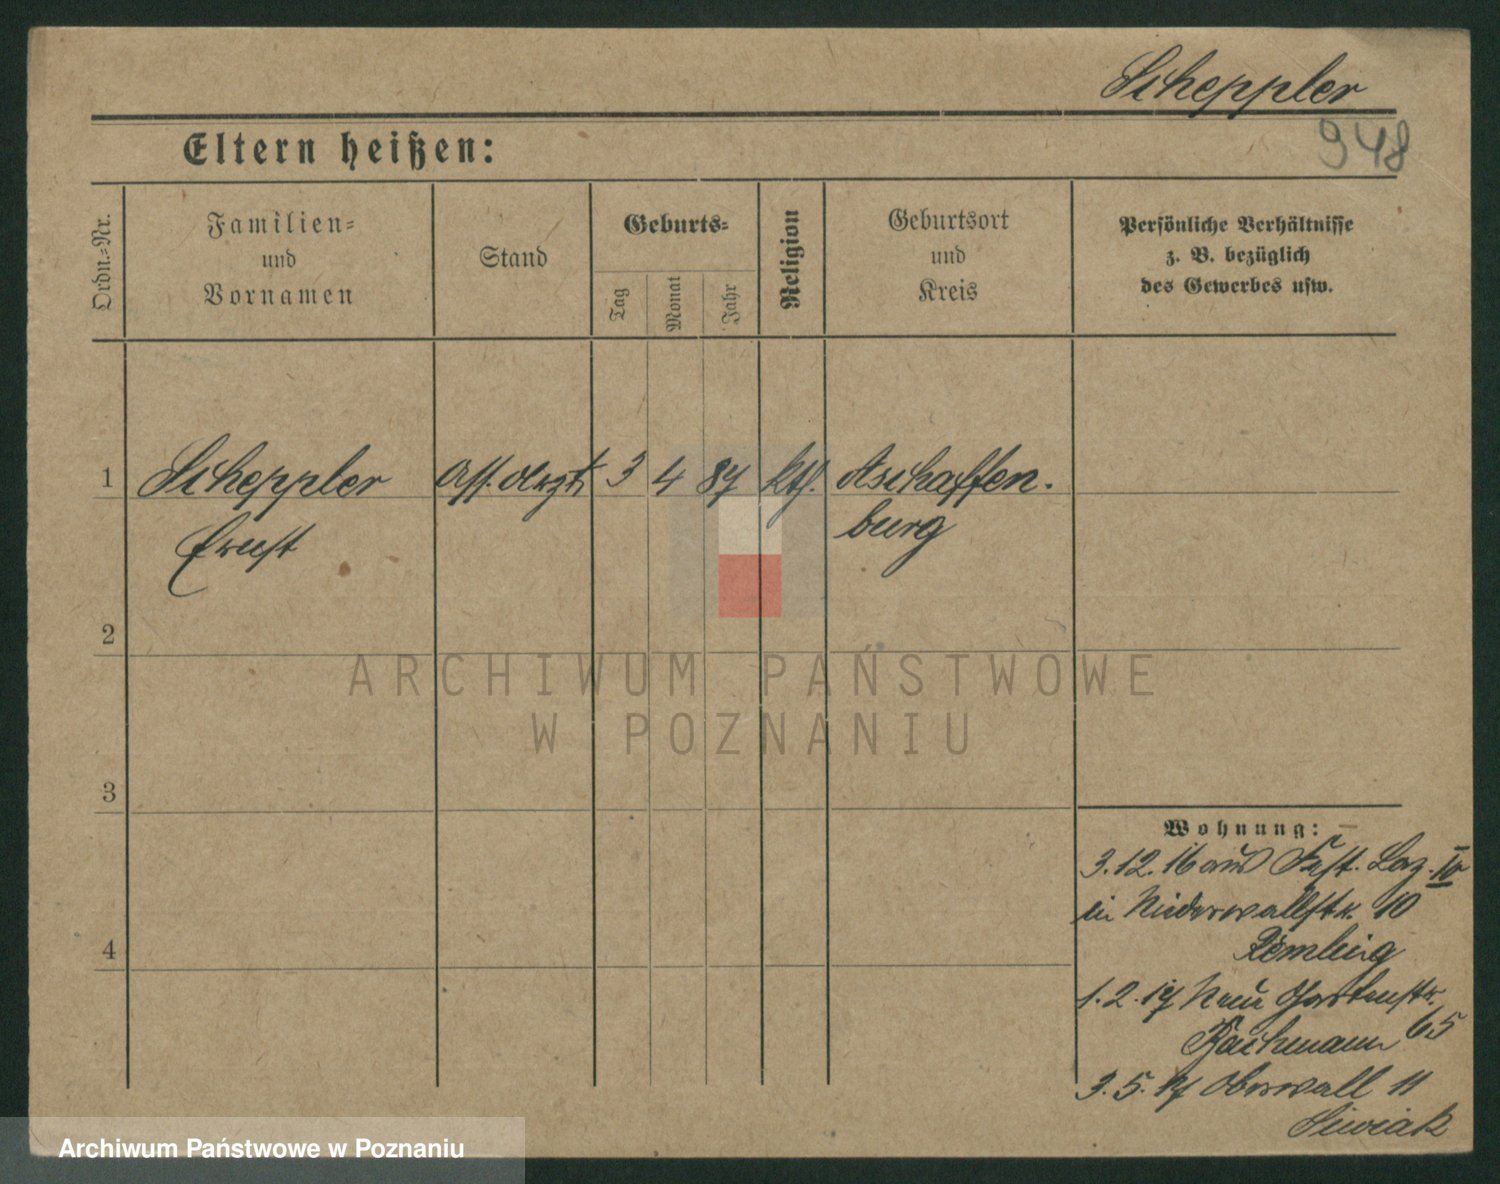 Scheppler
948
Eltern heißen:
Ordn.-Nr.
Familien-
und
Vornamen
Stand
Geburts-
Tag
Monat
Jahr
Religion
Geburtsort
und
Kreis
Persönliche Verhältnisse
z. B. bezüglich
des Gewerbes usw.
1 Scheppler Ass. Arzt 3 4 87 kth. Aschaffen-
Ernst burg
2
ARCHIWUM PAŃSTWOWE
W POZNANIU
3
Wohnung:
3.12.16 aus Fest. Laz. IV
in Niederwallstr. 10
4
1.2.17 Neue Gartenstr.
Bachmann 65
3.5.17 Oberwall 11
Siwiak
Archiwum Państwowe w Poznaniu